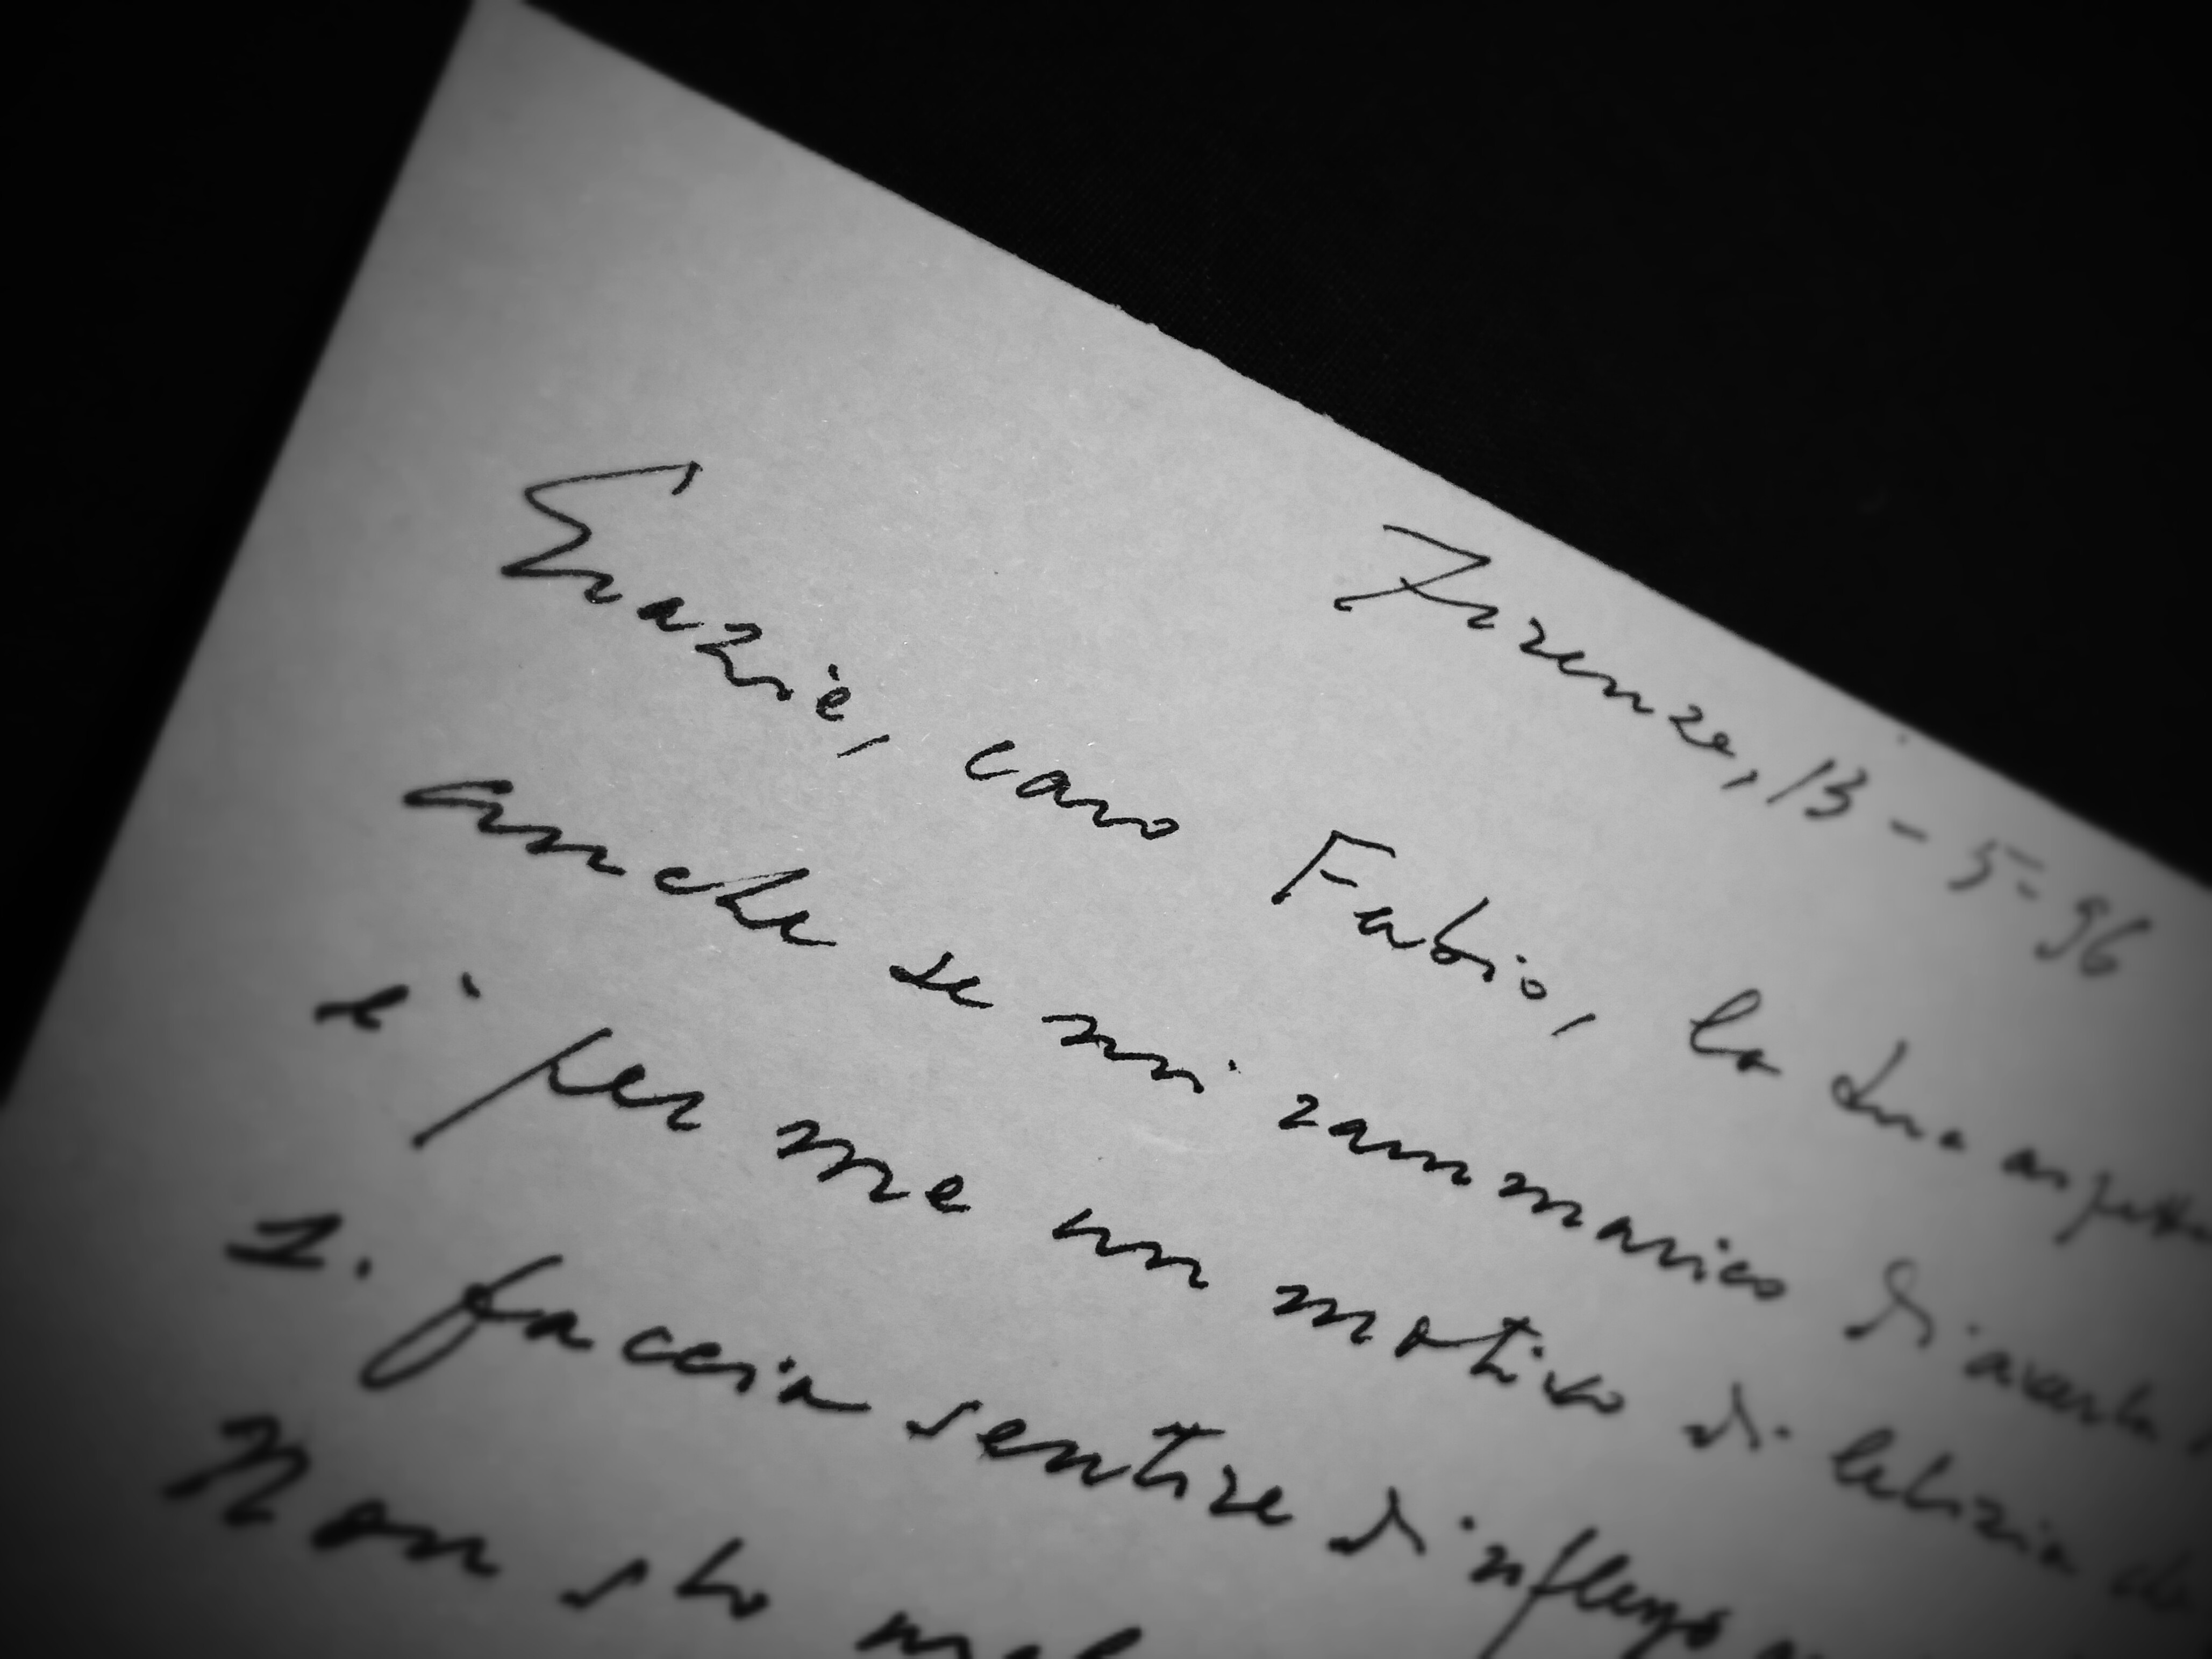 Firenze, 13-5-96
Grazie, caro Fabio, la tua
anche se mi rammarico di averla
è per me un motivo di letizia
faccia sentire di riflesso
Non sto